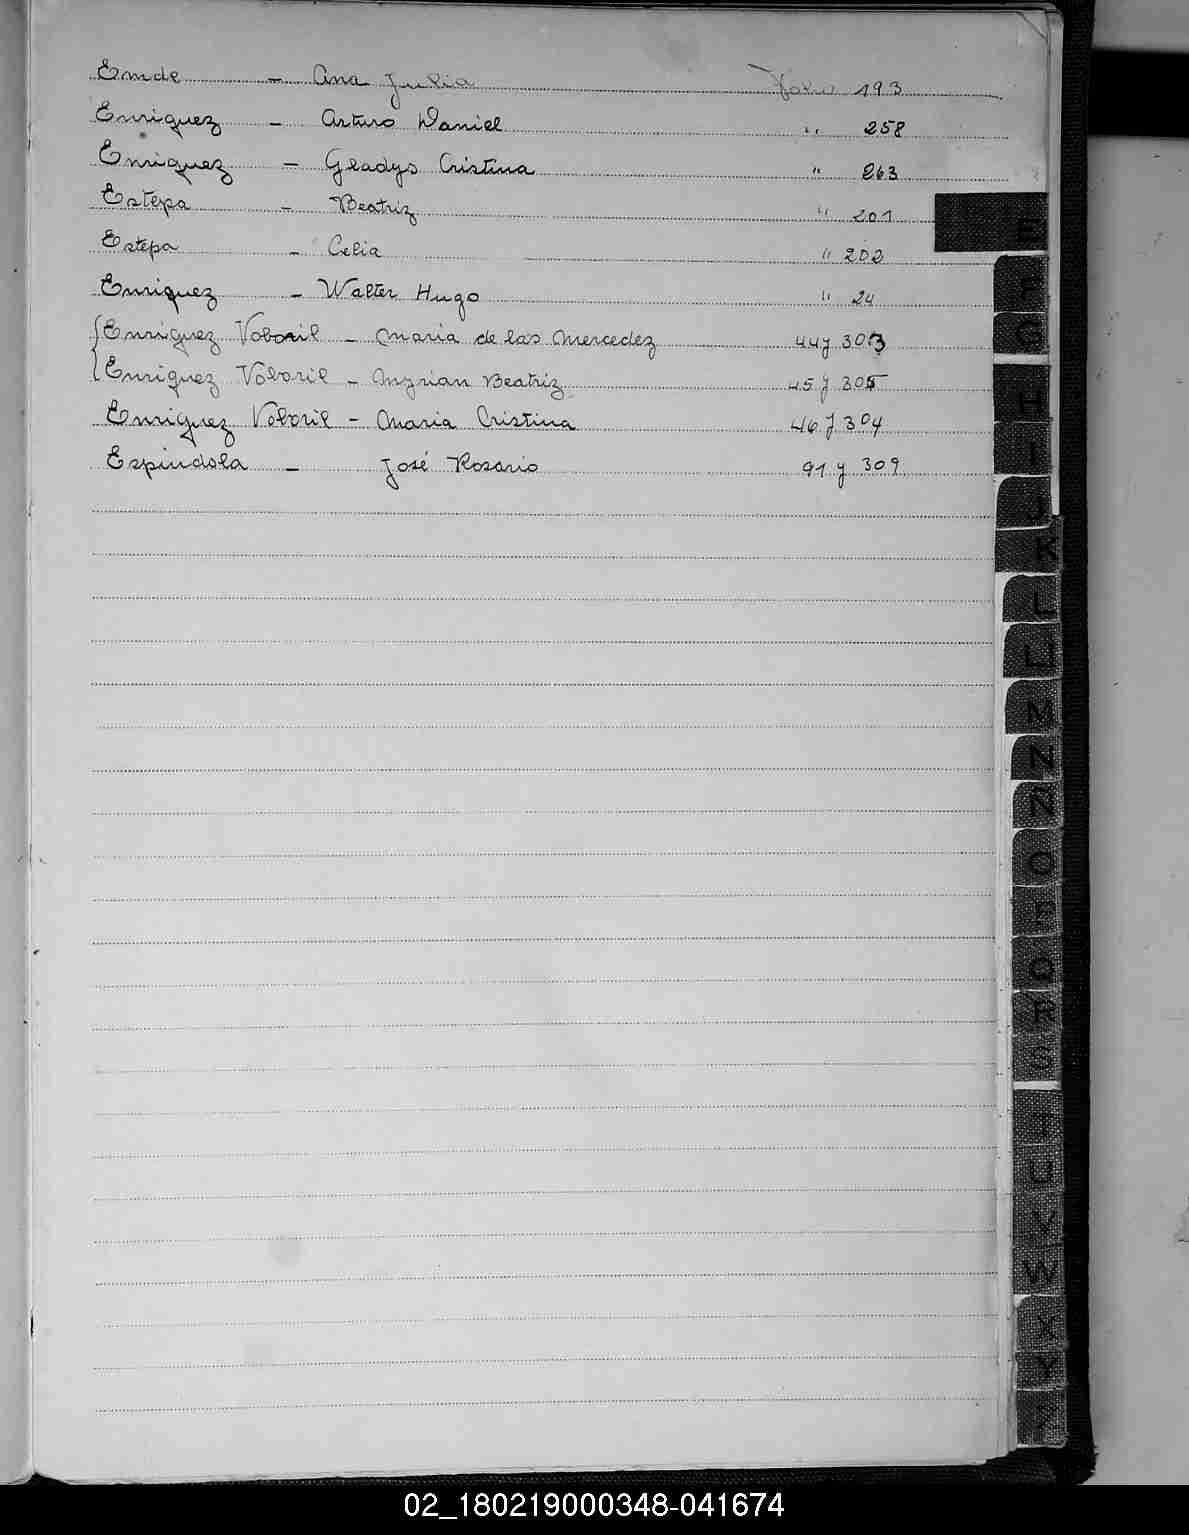 Emde - Ana Julia Folio 193
Enriquez - Arturo Daniel " 258
Enriquez - Gladys Cristina " 263
Estepa - Beatriz " 201
Estepa - Celia " 202
Enriquez - Walter Hugo " 24
Enriquez Voboril - Maria de las Mercedez 44 y 303
Enriquez Voboril - Myrian Beatriz 45 y 305
Enriquez Voboril - Maria Cristina 46 y 304
Espindola - José Rosario 91 y 309
E
F
G
H
I
J
K
L
LL
M
N
Ñ
O
P
Q
R
S
T
U
V
W
X
Y
Z
02_180219000348-041674